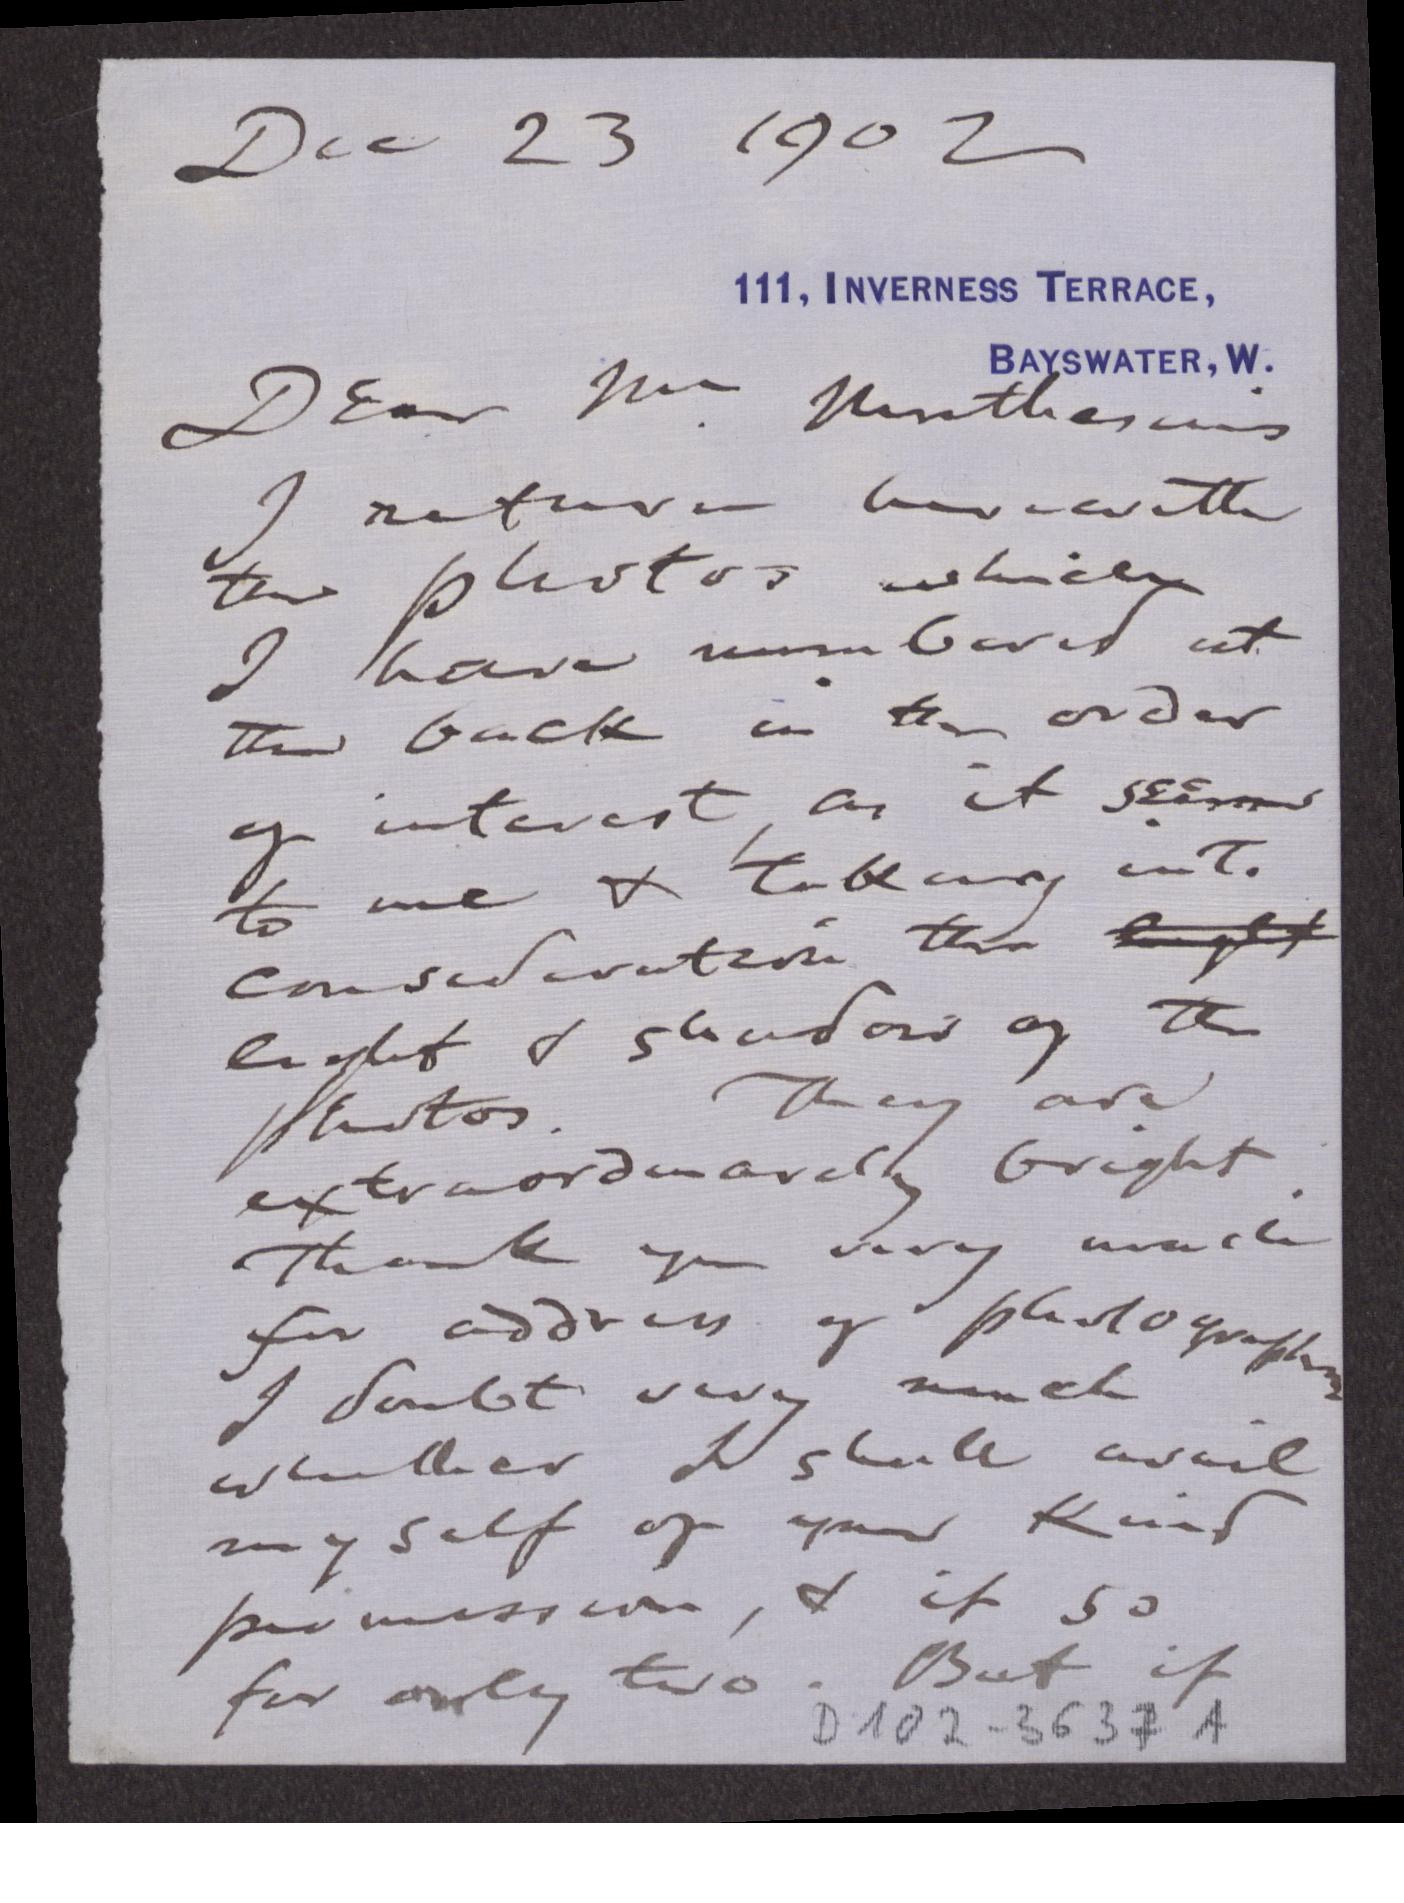 Dec 23 1902
111, INVERNESS TERRACE,
BAYSWATER, W.
Dear Mr. Muthesius
I return herewith
the photos which
I have numbered at
the back in the order
of interest, as it seems
to me & taking into
consideration the light
light & shadow of the
photos. They are
extraordinarily bright.
Thank you very much
for address of photographer
I doubt very much
whether I shall avail
myself of your kind
permission, & if so
for only two. But if
D102-3637 A